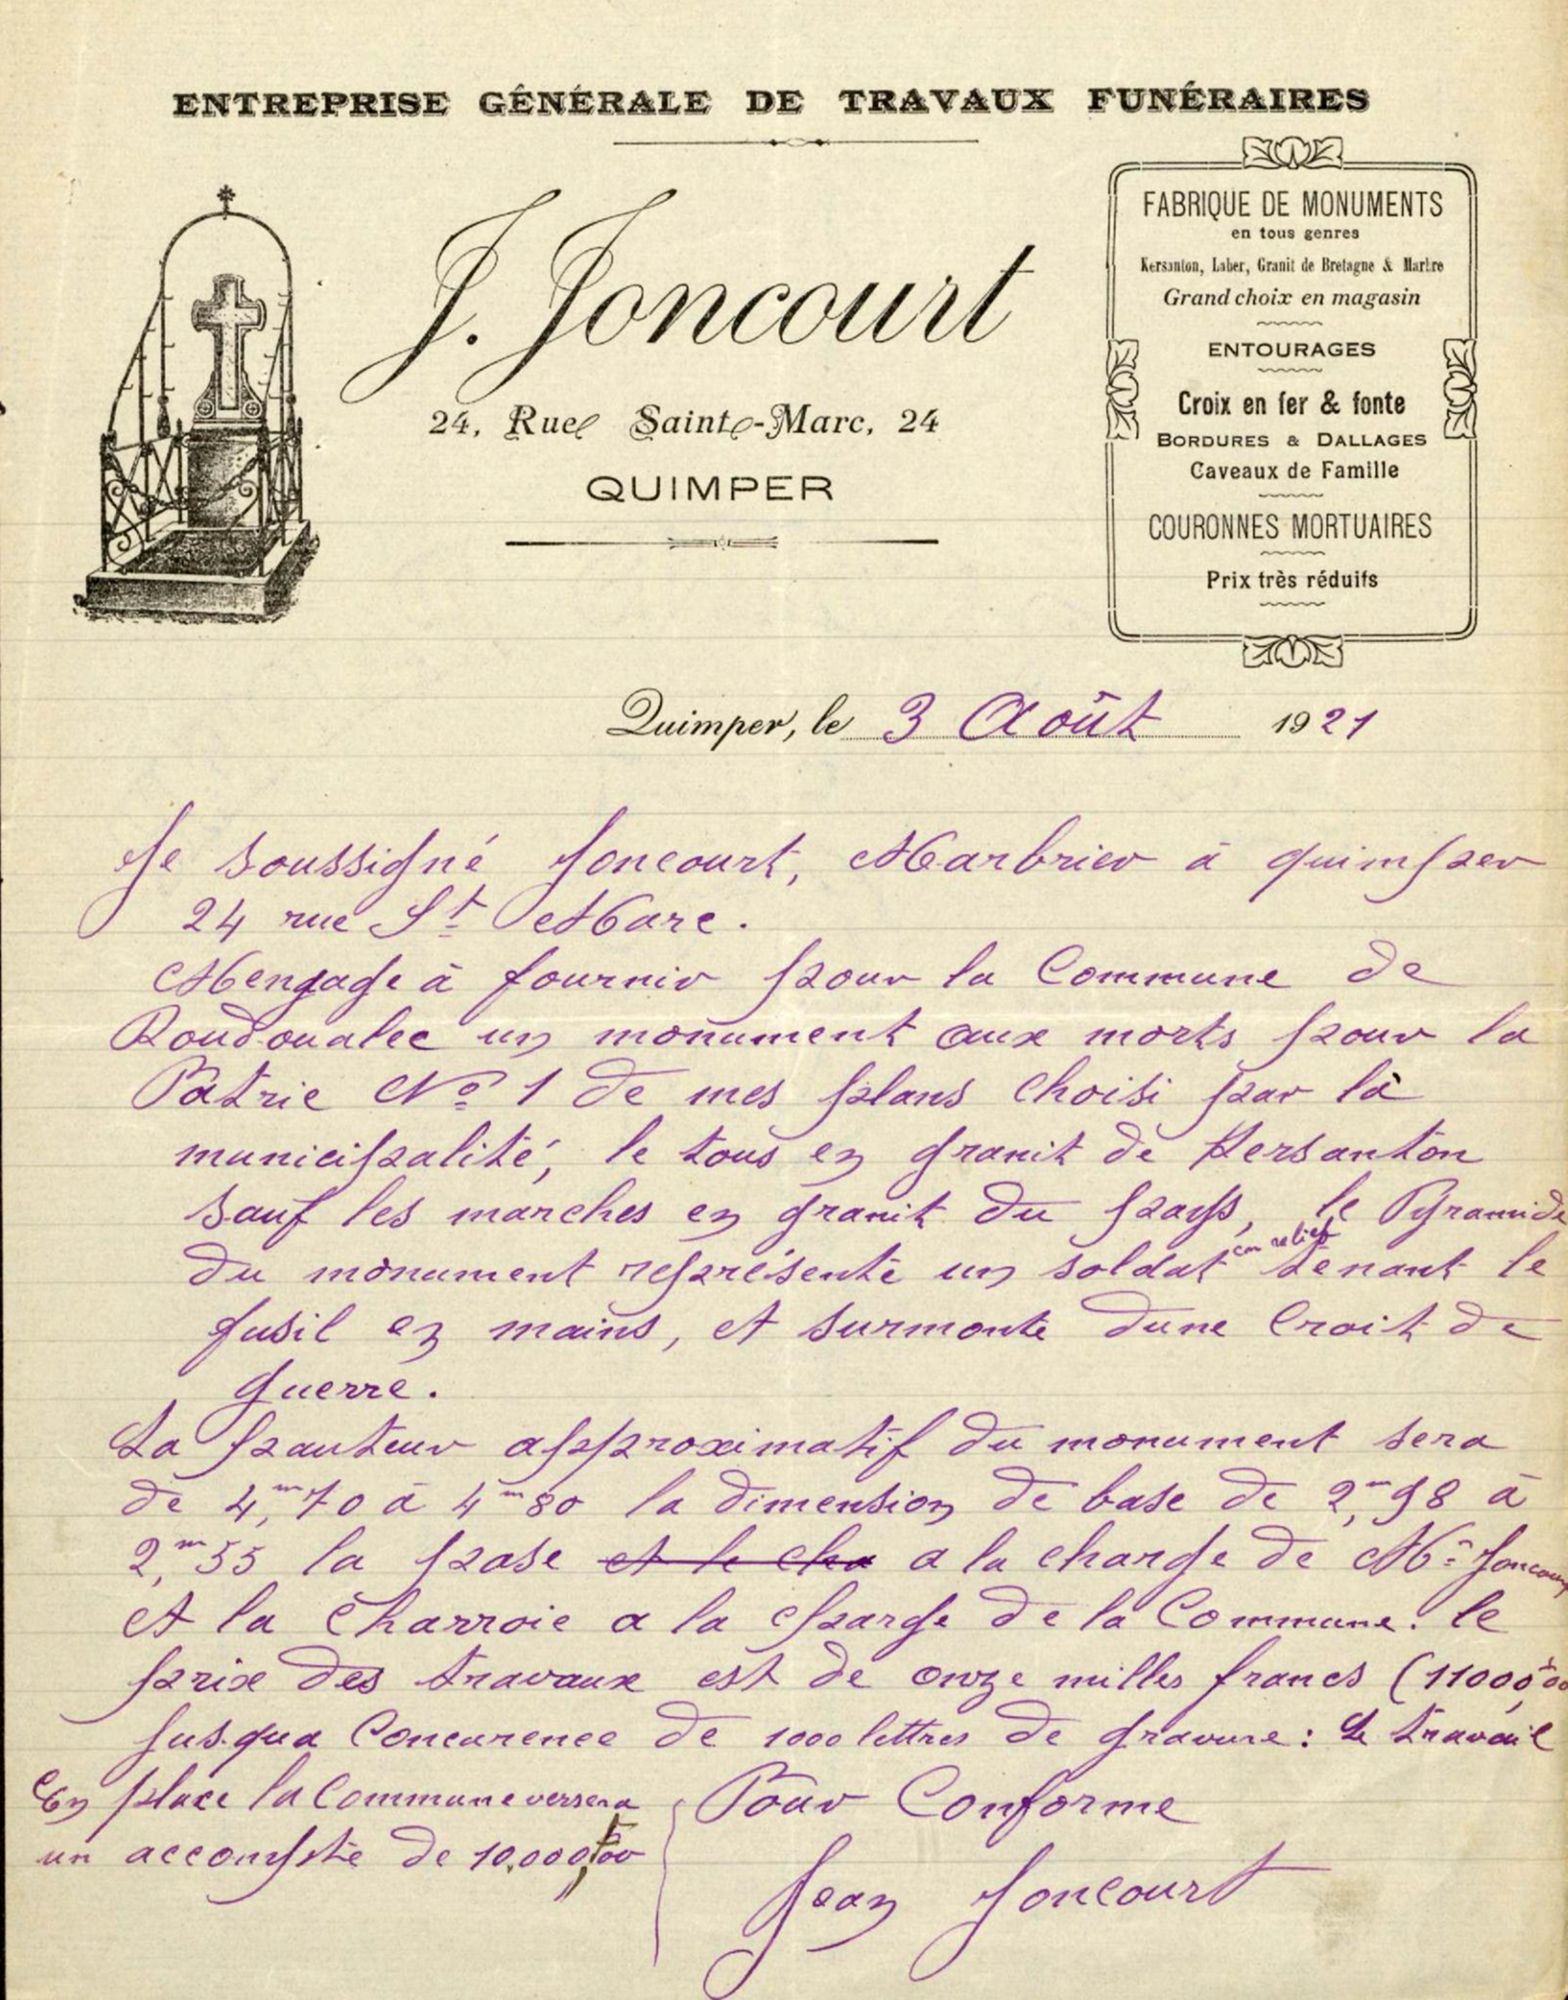 ENTREPRISE GÉNÉRALE DE TRAVAUX FUNÉRAIRES
J. Joncourt
24, Rue Sainte-Marc, 24
QUIMPER
FABRIQUE DE MONUMENTS
en tous genres
Kersanton, Laber, Granit de Bretagne & Marbre
Grand choix en magasin
ENTOURAGES
Croix en fer & fonte
BORDURES & DALLAGES
Caveaux de Famille
COURONNES MORTUAIRES
Prix très réduits
Quimper, le 3 Août 1921
Je soussigné Joncourt, Marbrier à quimper
24 rue St Marc.
Mengage à fournir pour la Commune de
Roudouallec un monument aux morts pour la
Patrie No 1 de mes plans choisi par la
municipalité, le tous en granit de Kersanton
sauf les marches en granit du pays, le Pyramide
du monument représente un soldat en relief tenant le
fusil en mains, et surmonte dune Croit de
guerre.
La hauteur approximatif du monument sera
de 4,m70 à 4m80 la dimension de base de 2,m98 à
2,m55 la pose et le cha a la charge de Mr Joncourt
et la Charroie a la charge de la Commune. le
prix des travaux est de onze milles francs (11000,f00
jusqua Concurence de 1000 lettres de gravure : Le travail
En place la Commune versera
un accompte de 10.000,f00
Pour Conforme
Jean Joncourt